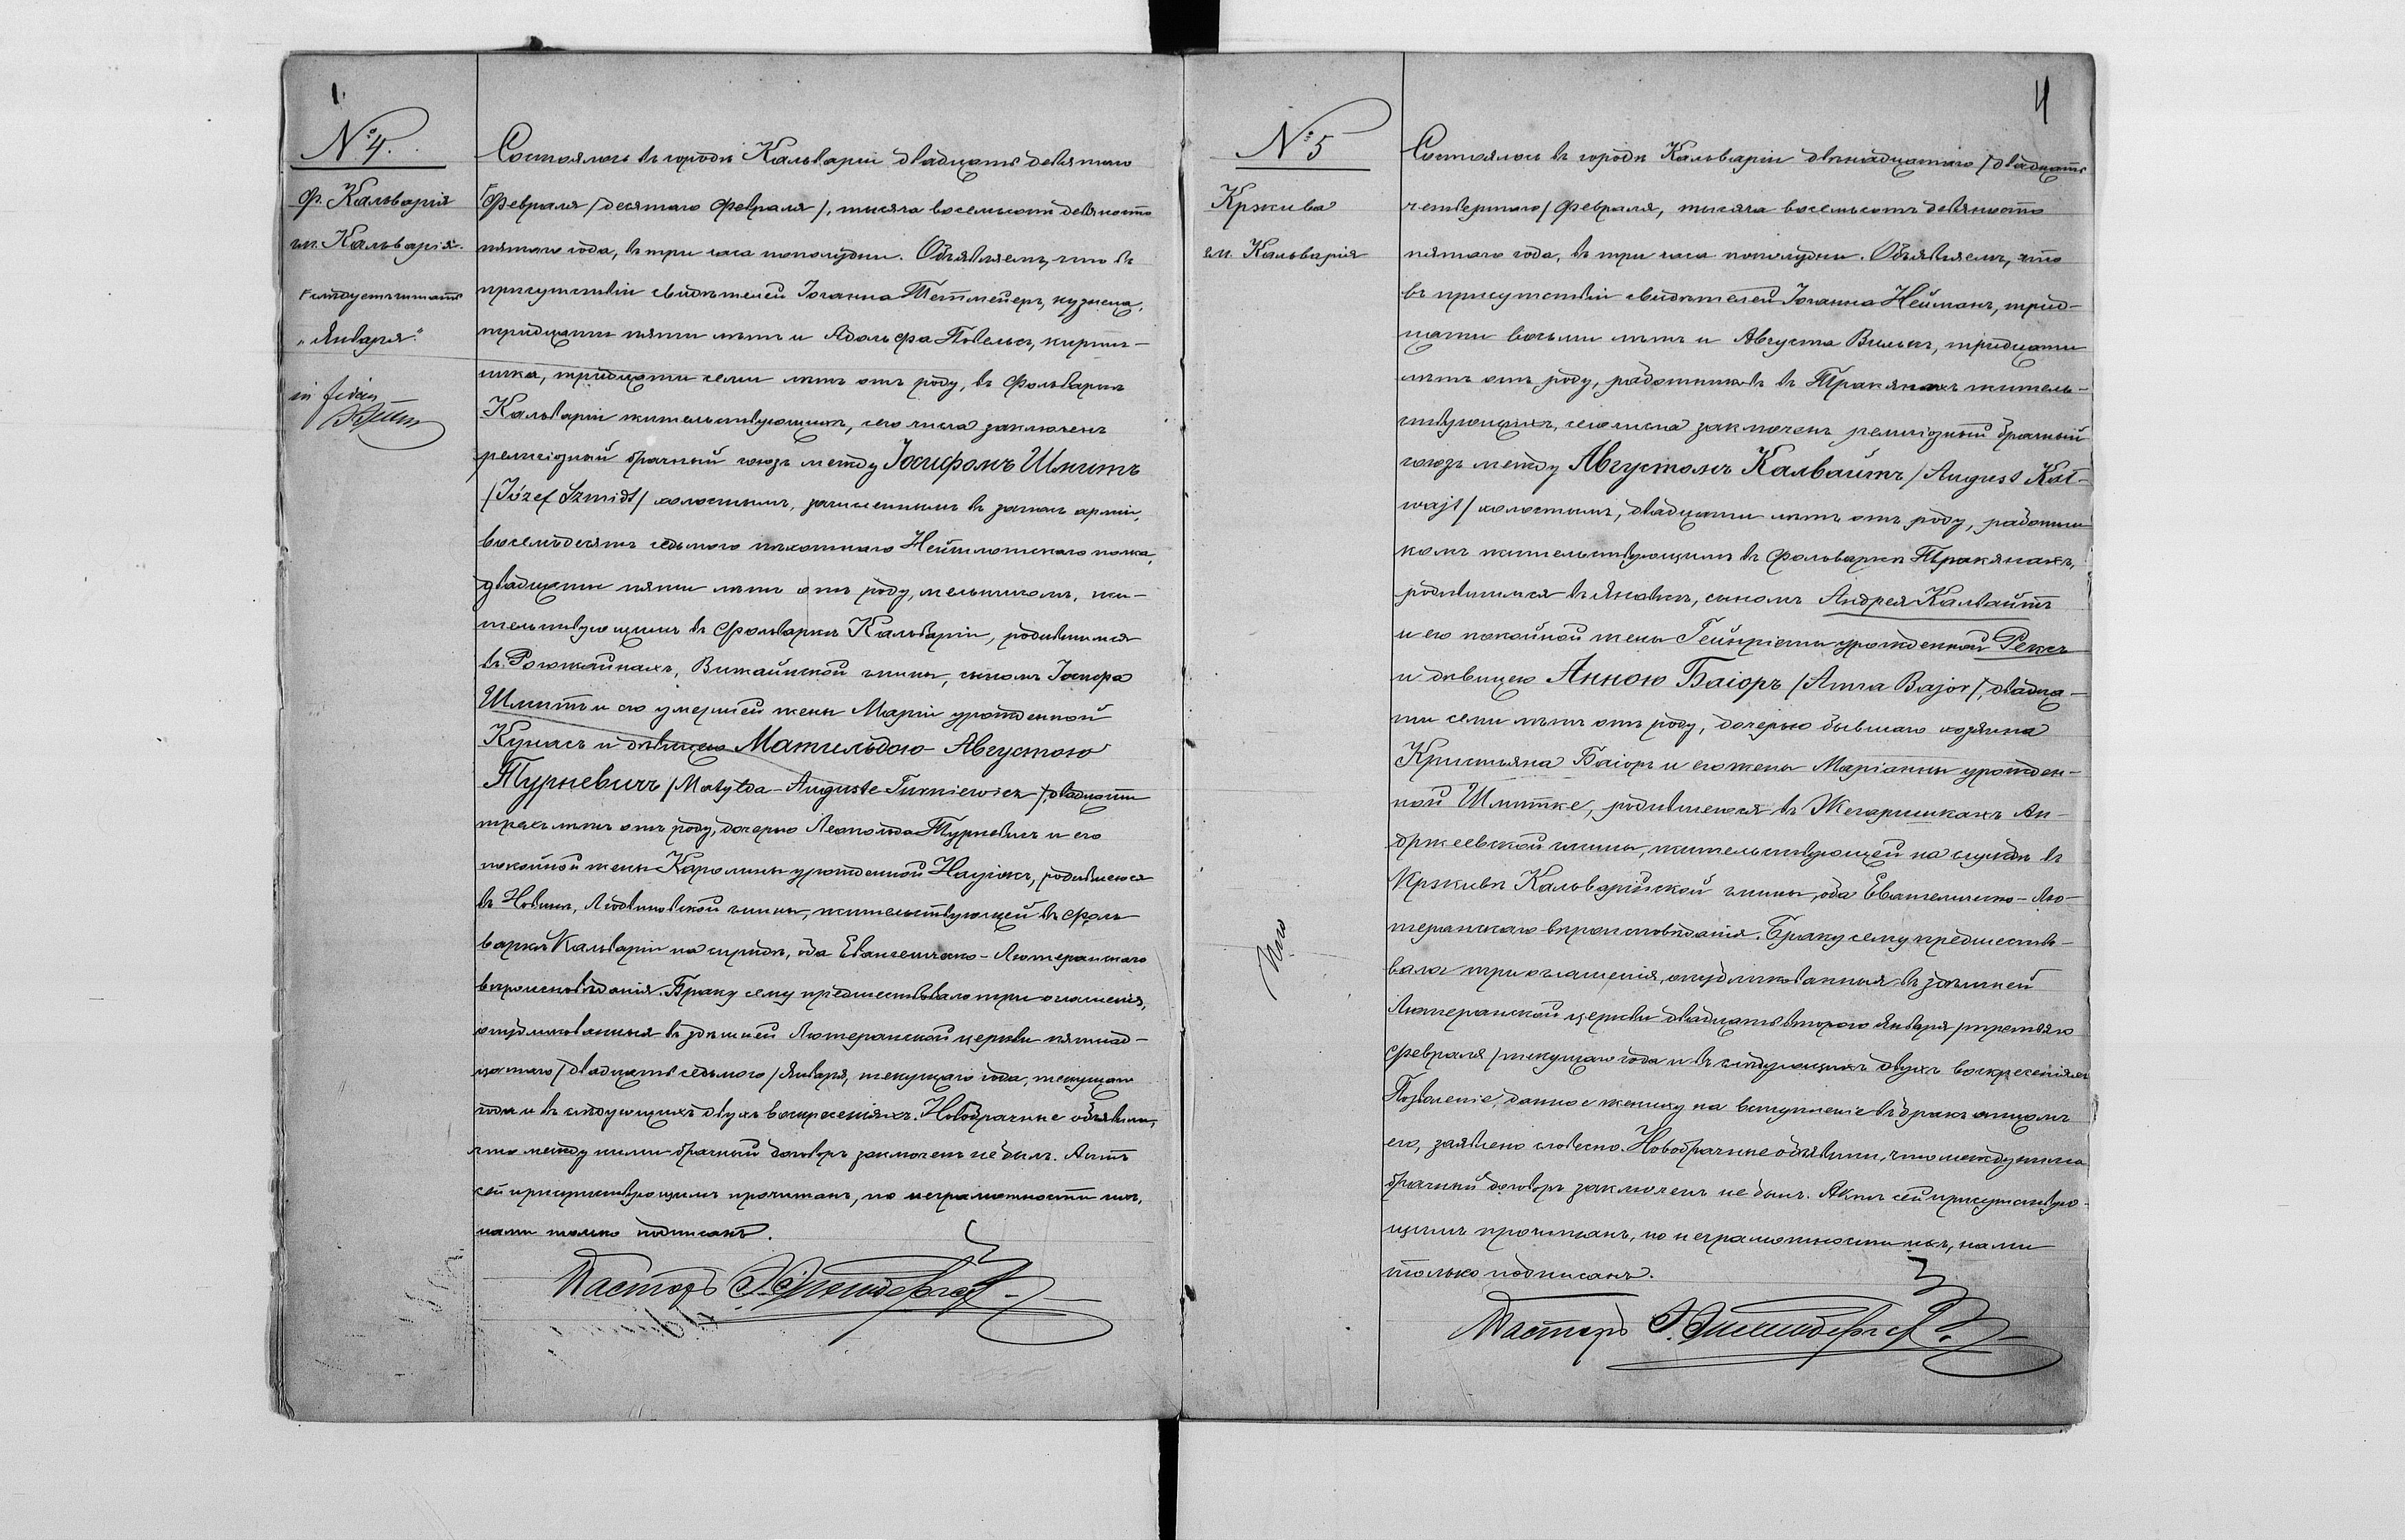 1.
№ 4.
Ф. Кальварія
гм. Кальварія.
следуетъ читать
„Января“
in fidem
Состоялось въ городѣ Кальваріи двадцать девятаго
Февраля /десятаго Февраля/, тысяча восемьсотъ девяносто
пятаго года, въ три часа пополудни. Объявляемъ, что въ
присутствіи свидѣтелей Іоганна Тетмейеръ, кузнеца,
тридцати пяти лѣтъ и Адольфа Повельсъ, кирпич-
ника, тридцати семи лѣтъ отъ роду, въ Фольваркѣ
Кальваріи жительствующихъ, сего числа заключенъ
религіозный брачный союзъ между Іосифомъ Шмитъ
/Józef Szmidt/ холостымъ, зачисленнымъ въ запасъ арміи,
восемьдесятъ седьмого пѣхотнаго Нейшлотскаго полка,
двадцати пяти лѣтъ отъ роду, мельникомъ, жи-
тельствующимъ въ Фольваркѣ Кальваріи, родившимся
въ Рогожайнахъ, Вижайнской гмины, сыномъ Іосифа
Шмитъ и его умершей жены Маріи урожденной
Кунасъ и дѣвицею Матильдою-Августою
Турневичъ /Matylda-Auguste Turniewicz/, двадцати
трехъ лѣтъ отъ роду, дочерью Леопольда Турневичъ и его
покойной жены Каролины урожденной Наујокъ, родившеюся
въ Новинѣ, Людвиновской гмины, жительствующей въ фоль-
варкѣ Кальваріи на службѣ, оба Евангелическо-Лютеранскаго
вѣроисповѣданія. Браку сему предшествовало три оглашенія,
опубликованныя въ здѣшней Лютеранской церкви пятнад-
цатаго /двадцать седьмого/ Января, текущаго года, текущаго
года и въ слѣдующихъ двухъ воскресеніяхъ. Новобрачные объявили,
что между ними брачный договоръ заключенъ не былъ. Актъ
сей присутствующимъ прочитанъ, по неграмотности ихъ,
нами только подписанъ.
Пасторъ
4
№ 5
Кржива
гм. Кальварія
Состоялось въ городѣ Кальваріи двѣнадцатаго /двадцать
четвертаго/ Февраля, тысяча восемьсотъ девяносто
пятаго года, въ три часа пополудни. Объявляемъ, что
въ присутствіи свидѣтелей Іоганна Нейманъ, трид-
цати восьми лѣтъ и Августа Вилькъ, тридцати
лѣтъ отъ роду, работниковъ въ Тракянахъ житель-
ствующихъ, сего числа заключенъ религіозный брачный
союзъ между Августомъ Калвайтъ /August Kal-
wajt/ холостымъ, двадцати лѣтъ отъ роду, работни-
комъ жительствующимъ въ фольваркѣ Тракянахъ,
родившимся въ Яновкѣ, сыномъ Андрея Калвайтъ
и его покойной жены Гейнріеты урожденной Рексъ
и дѣвицею Анною Баіоръ /Anna Bajor/, двадца-
ти семи лѣтъ отъ роду, дочерью бывшаго хозяина
Кристьяна Баіоръ и его жены Маріанны урожден-
ной Шмитке, родившеюся въ Жегаришкахъ Ан-
држеевской гмины, жительствующей на службѣ въ
Крживѣ Кальварійской гмины, оба Евангелическо-Лю-
теранскаго вѣроисповѣданія. Браку сему предшество-
вало три оглашенія, опубликованныя въ здѣшней
Лютеранской церкви двадцать второго Января /третьяго
Февраля/ текущаго года и въ слѣдующихъ двухъ воскресеніяхъ
Позволеніе, данное жениху на вступленіе въ бракъ отцомъ
его, заявлено словесно. Новобрачные объявили, что между ними
брачный договоръ заключенъ не былъ. Актъ сей присутствую-
щимъ прочитанъ, по неграмотности ихъ, нами
только подписанъ.
Пасторъ